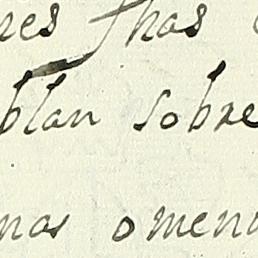 res thas
blan sobre
nas omen